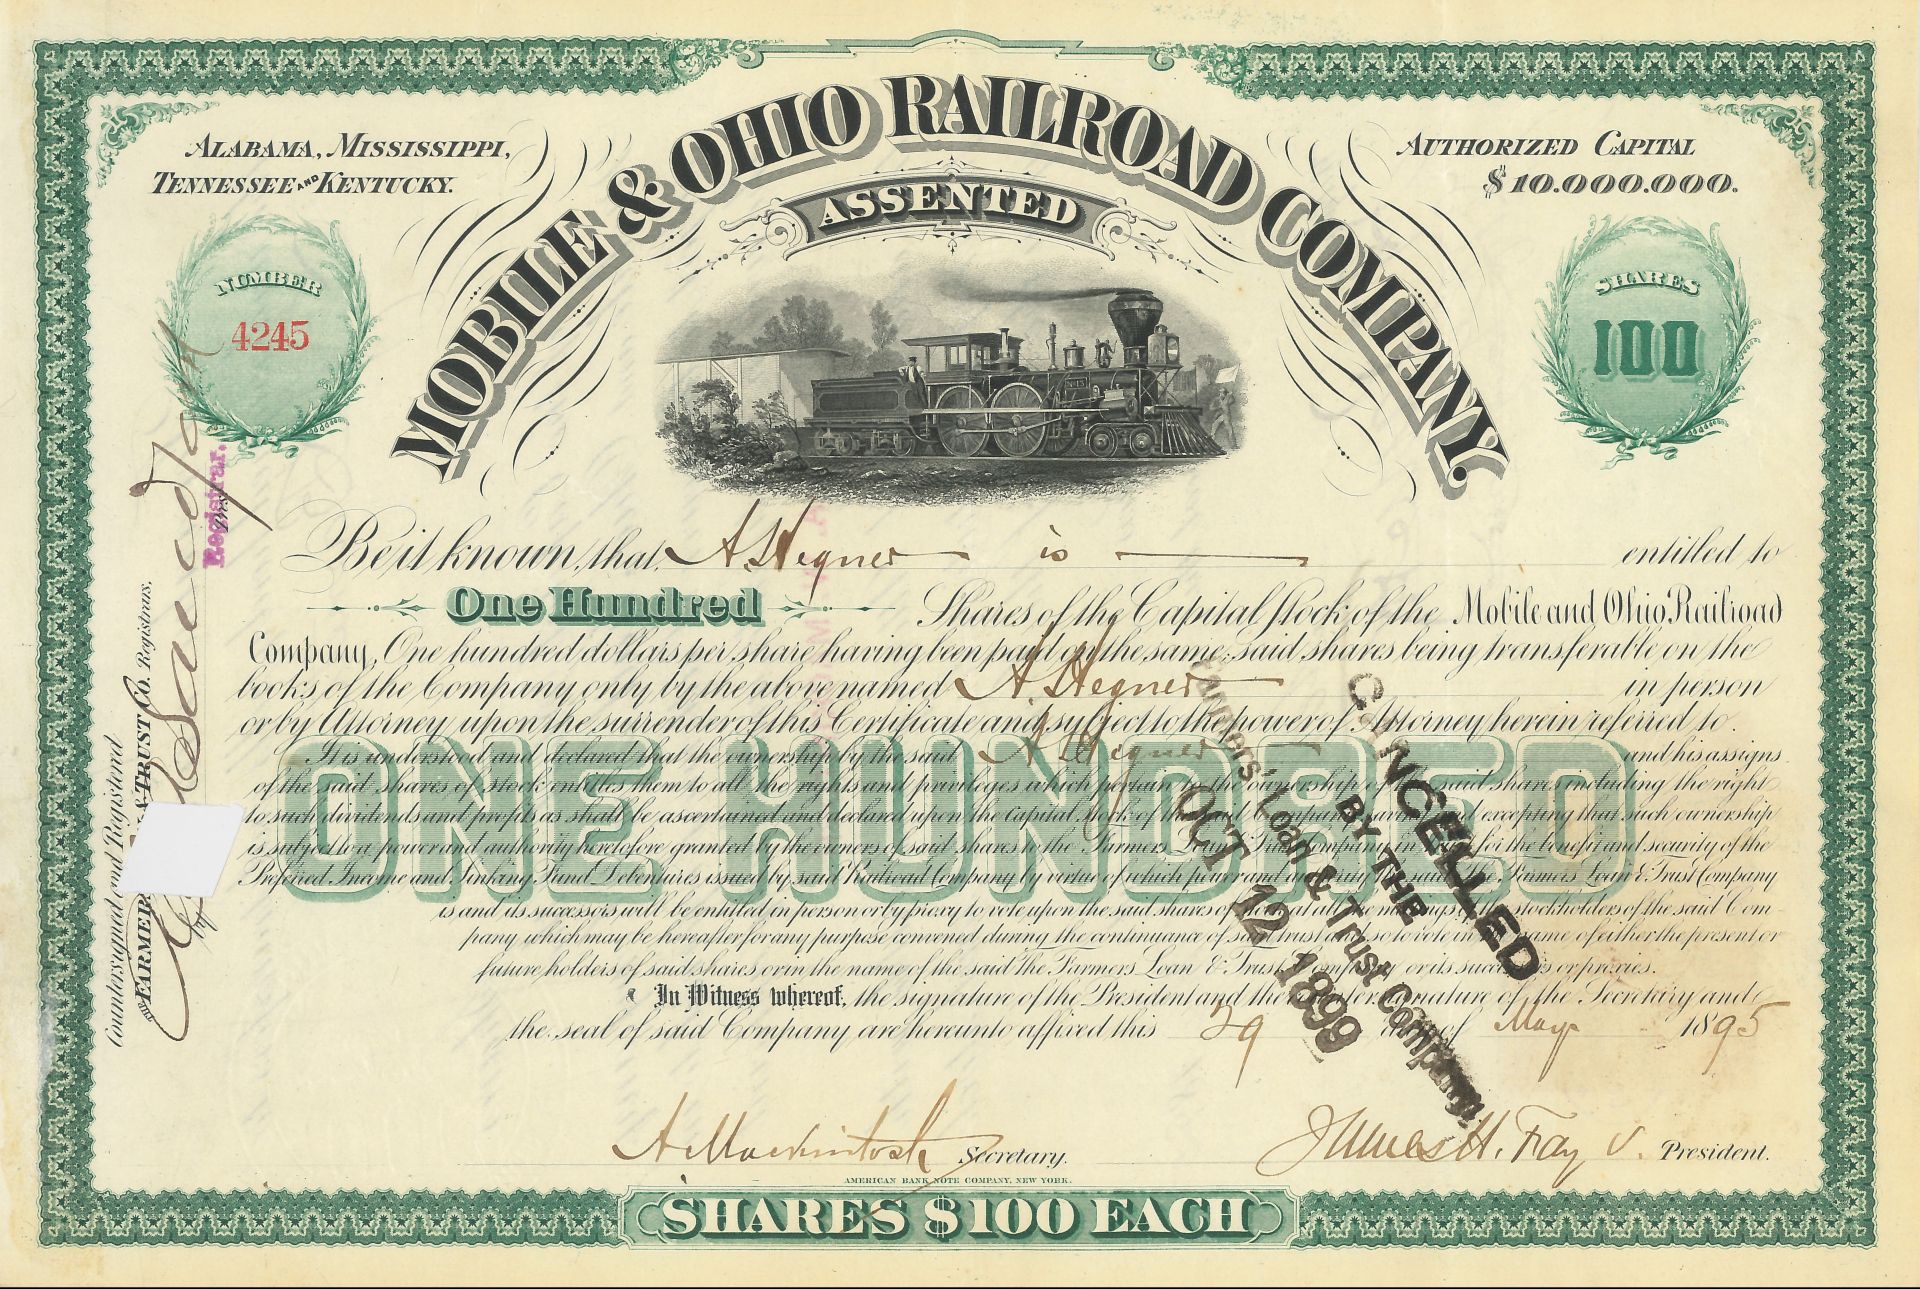 ALABAMA, MISSISSIPPI,
TENNESSEE AND KENTUCKY.
MOBILE & OHIO RAILROAD COMPANY.
ASSENTED
AUTHORIZED CAPITAL
$10.000.000.
NUMBER
4245
SHARES
100
No 15
Be it known, that A. Hegner is entitled to
One Hundred Shares of the Capital Stock of the Mobile and Ohio Railroad
Company, One hundred dollars per share having been paid on the same; said shares being transferable on the
books of the Company only by the above named A Hegner in person
or by Attorney upon the surrender of this Certificate and subject to the power of Attorney herein referred to.
ONE HUNDRED
It is understood and declared that the ownership by the said A Hegner and his assigns
of the said shares of stock entitles them to all the rights and privileges which pertain to the ownership of said shares including the right
to such dividends and profits as shall be ascertained and declared upon the Capital Stock of the said Company saving and excepting that such ownership
is subject to a power and authority heretofore granted by the owners of said shares to the Farmers Loan & Trust Company in trust for the benefit and security of the
Preferred Income and Sinking Fund Debentures issued by said Railroad Company by virtue of which power and authority the said the Farmers Loan & Trust Company
is and its successors will be entitled in person or by proxy to vote upon the said shares of stock at all the meetings of the stockholders of the said Com-
pany which may be hereafter for any purpose convened during the continuance of said trust and so to vote in the name of either the present or
future holders of said shares or in the name of the said The Farmers Loan & Trust Company or its successors or proxies.
In Witness whereof, the signature of the President and the counter signature of the Secretary and
the seal of said Company are hereunto affixed this 29 day of May 1895
A Mackintosh Secretary.
James H. Fay V. President.
AMERICAN BANK NOTE COMPANY, NEW YORK.
SHARES $100 EACH
Countersigned and Registered
THE FARMERS & TRUST CO. Registrars.
by
Registrar.
CANCELLED
BY THE
Farmers' Loan & Trust Company.
OCT 12 1899